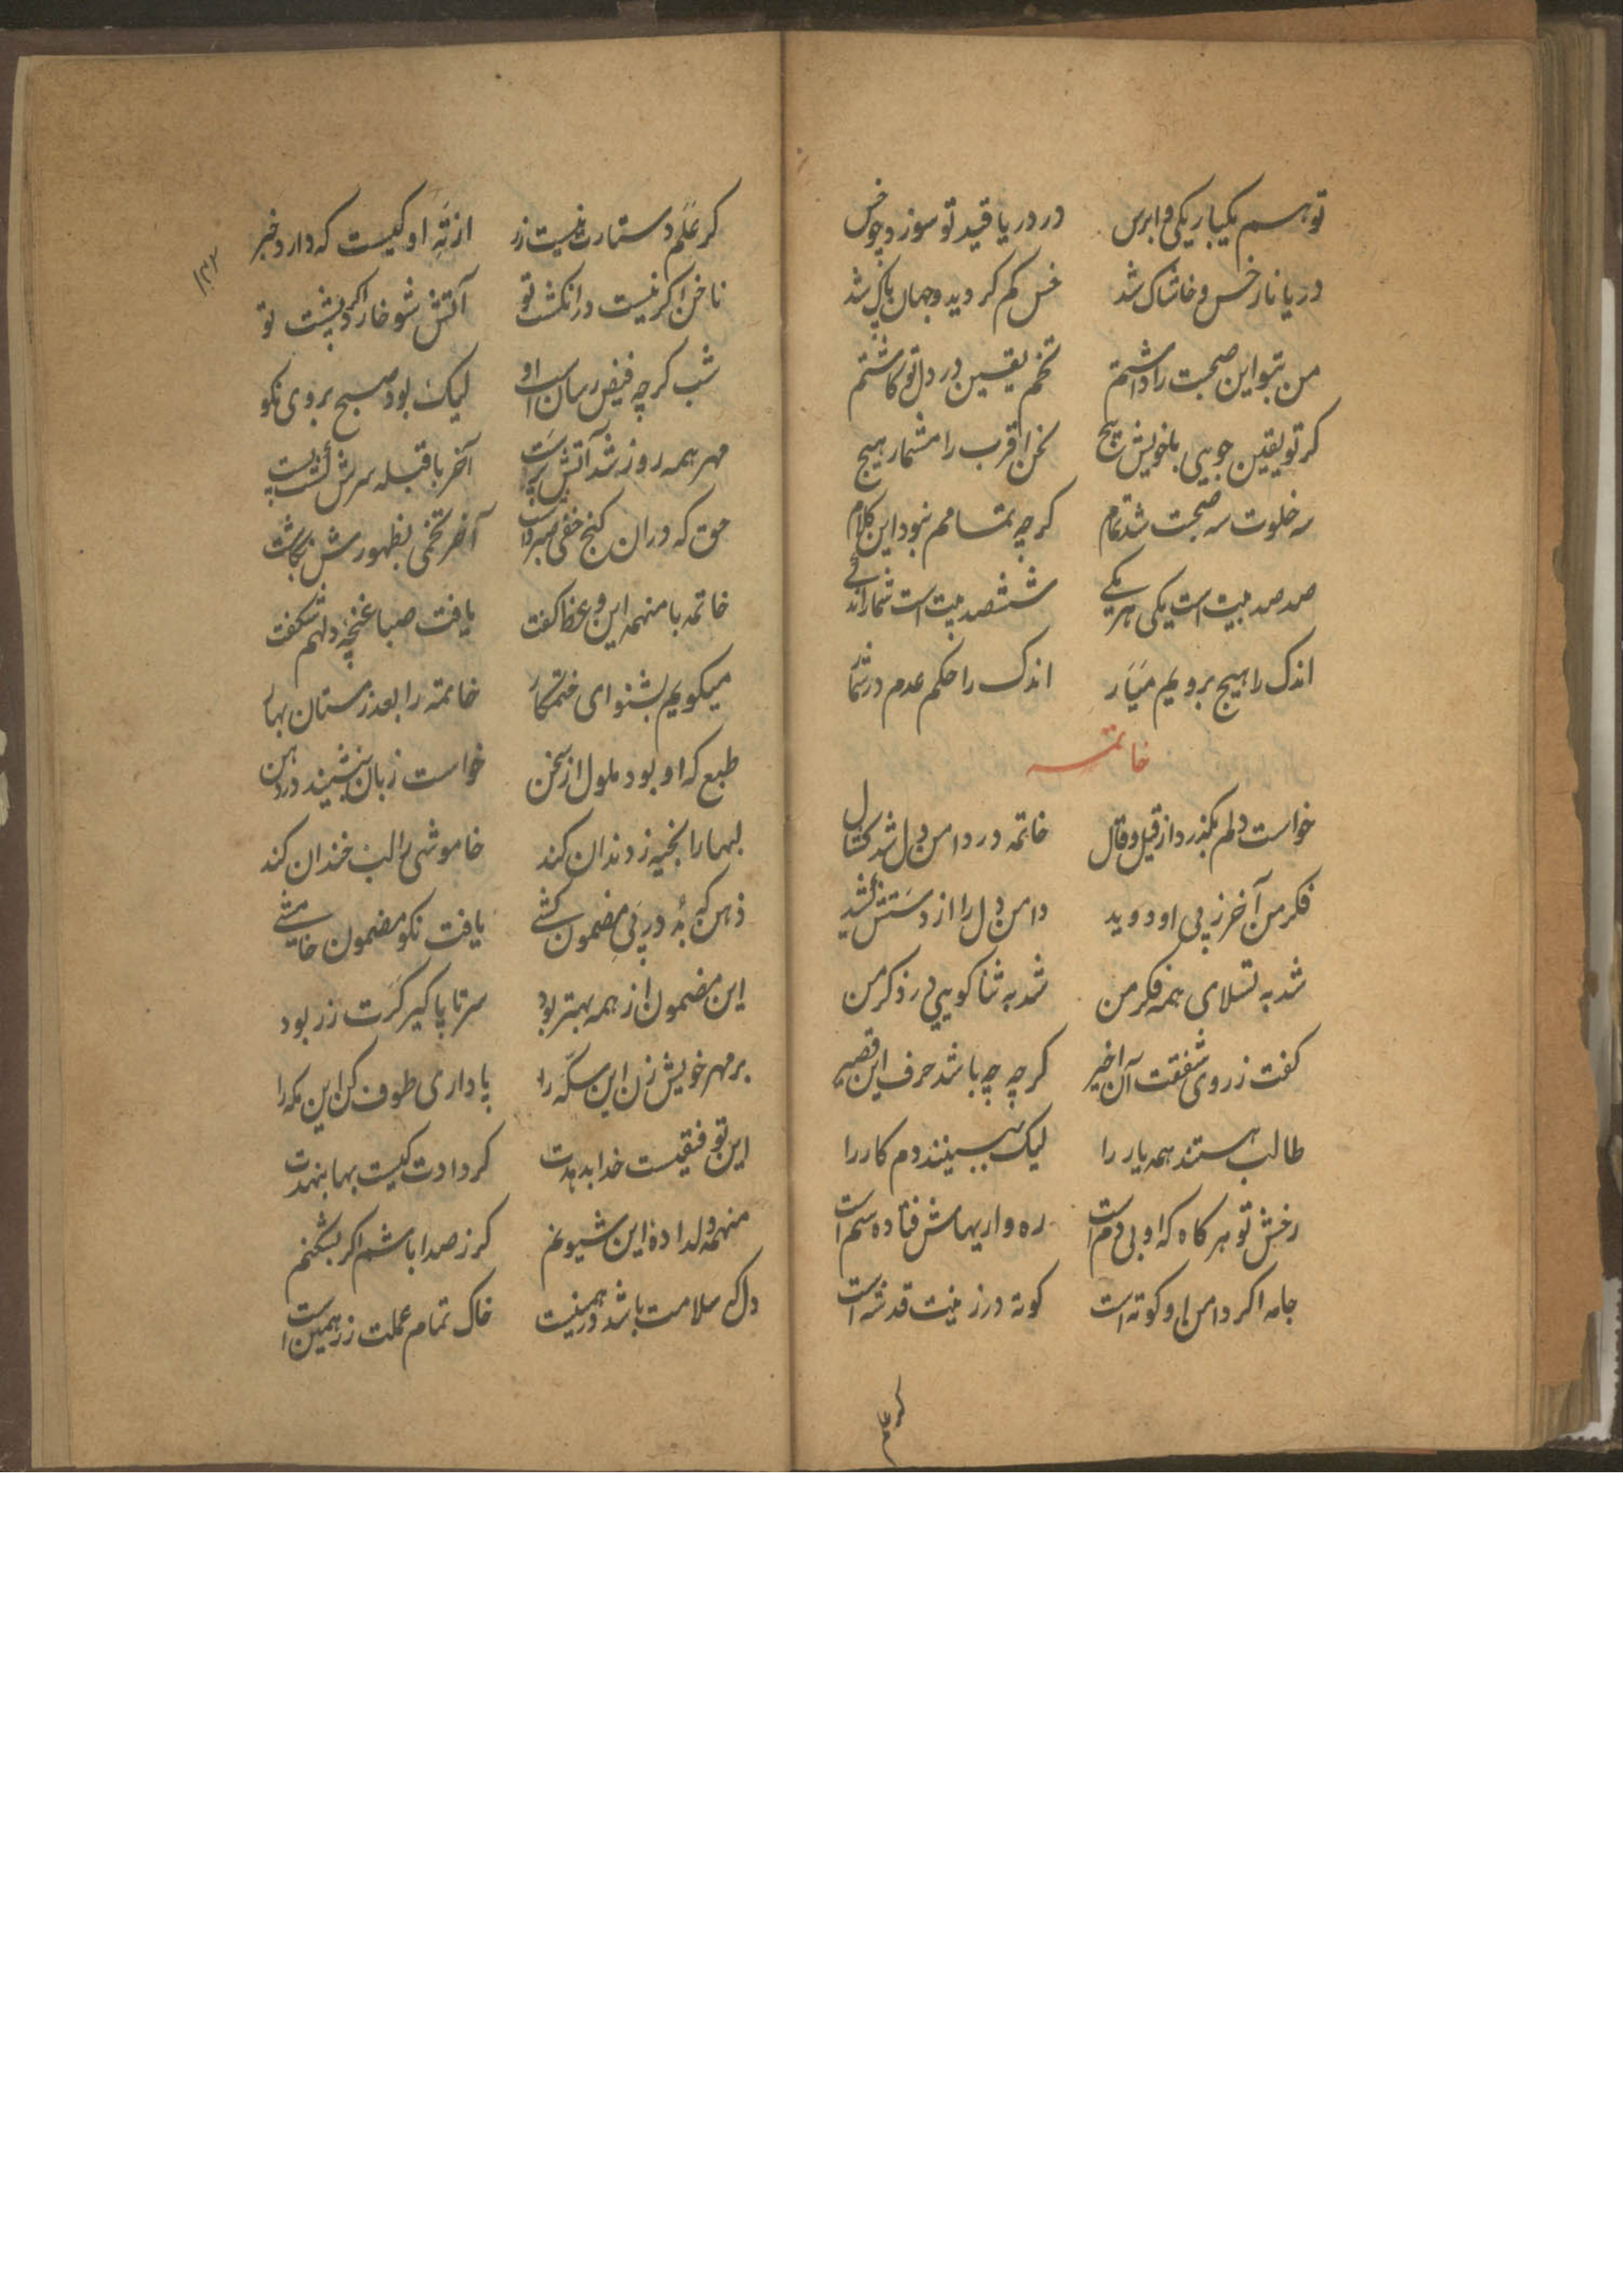 تو هم یکبار یکی و ابرس در دریا قید تو سوزد چو خس
دریا نار خس و خاشاک شد خس کم کردید و جهان پاک شد
من بتو این صحبت را داشتم تخم یقین در دل تو کاشتم
کر تو یقین جویی با خویش پیچ نحن اقرب را مشمار هیچ
سه خلوت سه صحبت شد تمام کرچه تمامم نبود این کلام
صد صد بیت است یکی هر یکے ششصد بیت است شمار اندکے
اندک را هیچ برویم میَار اندک را حکم عدم در شمار
خاتمه
خواست دلم بکذرد از قیل و قال خاتمه در دامن دل شد کشال
فکر من آخر ز پی او دوید دامن دل را از دستش کشید
شد به تسلای همه فکر من شد به ثنا کویی در ذکر من
کفت ز روی شفقت آن اخیر کرچه چه باشد حرف این قصیر
طالب هستند همه یار را لیک ببینند دم کار را
رخش تو هر کاه که او بی دم است ره واریهاش فتاده سم است
جامه اکر دامن او کوته است کوته در زینت قد شه است
کر علم
۱۴۲
کر علم دستارت نیست زر از ته او کیست که دارد خبر
ناخن اکر نیست در انکشت تو آتش شو خار اکر در پشت تو
شب کرچه فیض رسان است او لیک بود صبح بروی نکو
مهر همه روز شد آتش پرست آخر با قبله سرش کشت پست
حق که در ان کنج خفی صبر داشت آخر تخمی بظهورش بکاشت
خاتمه با منهمه این وعظ کفت یافت صبا غنچهٔ دلهم شکفت
میکویم بشنو ای ختم کار خاتمه را بعد زمستان بهار
طبع که او بود ملول از سخن خواست زبان بنشیند در دهن
لبها را بخیه ز دندان کند خاموشی را لب خندان کند
ذهن که بُد در پی مضمون کشے یافت نکو مضمون خامشے
این مضمون از همه بهتر بود سر تا پا کیر کرت زر بود
بر مهر خویش زن این سکّه را پا داری طوف کن این مکه را
این توفیقیست خدا بدهدت کر دادت کیست بها بنهدت
منهمه دلدادهٔ این شیونم کر ز صدا باشم اکر بشکنم
دل که سلامت باشد در همنیت خاک تمام عملت زر همین است